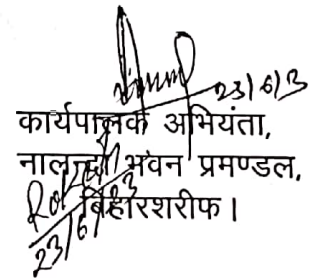 23/6/3
कार्यपालक अभियंता,
नालन्दा भवन प्रमण्डल,
बिहारशरीफ।
23/6/23